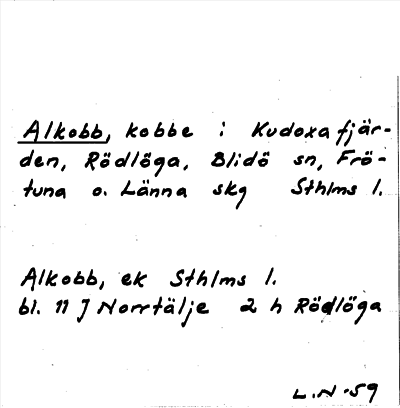 Alkobb, kobbe i Kudoxafjär-
den, Rödlöga, Blidö sn, Frö-
tuna o. Länna skg Sthlms l.
Alkobb, ek Sthlms l.
bl. 11 J Norrtälje 2 h Rödlöga
L.N-59